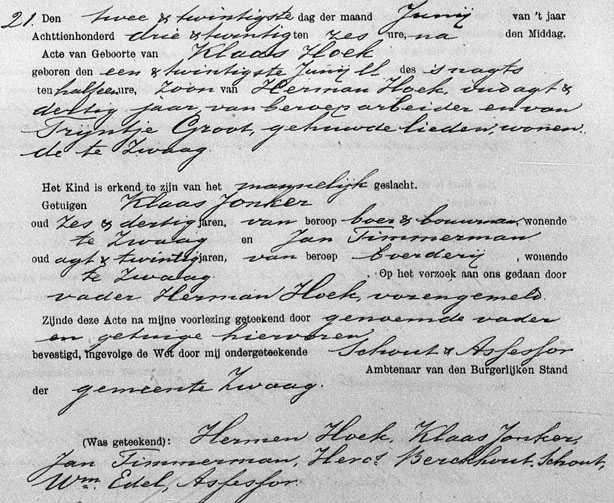 21. Den twee & twintigste dag der maand Junij van 't jaar
Achttienhonderd drie & twintig ten zes ure, na den Middag.
Acte van Geboorte van Klaas Hoek
geboren den een & twintigste Junij ll des snagts
ten half een ure, Zoon van Herman Hoek, oud agt &
dertig jaar, van beroep arbeider en van
Trijntje Groot, gehuwde lieden, wonen:
de te Zwaag.
Het Kind is erkend te zijn van het mannelijk geslacht.
Getuigen Klaas Jonker
oud zes & dertig jaren, van beroep boer & bouwman, wonende
te Zwaag en Jan Timmerman
oud agt & twintig jaren, van beroep boerderij, wonende
te Zwaag. Op het verzoek aan ons gedaan door
vader Herman Hoek, vorengemeld.
Zijnde deze Acte na mijne voorlezing geteekend door genoemde vader
en getuige hiervoren
bevestigd, ingevolge de Wet door mij ondergeteekende Schout & Assessor
Ambtenaar van den Burgerlijken Stand
der gemeente Zwaag.
(Was geteekend): Hermen Hoek, Klaas Jonker,
Jan Timmerman, Berckhout, Schout,
Wm. Edel, Assessor.